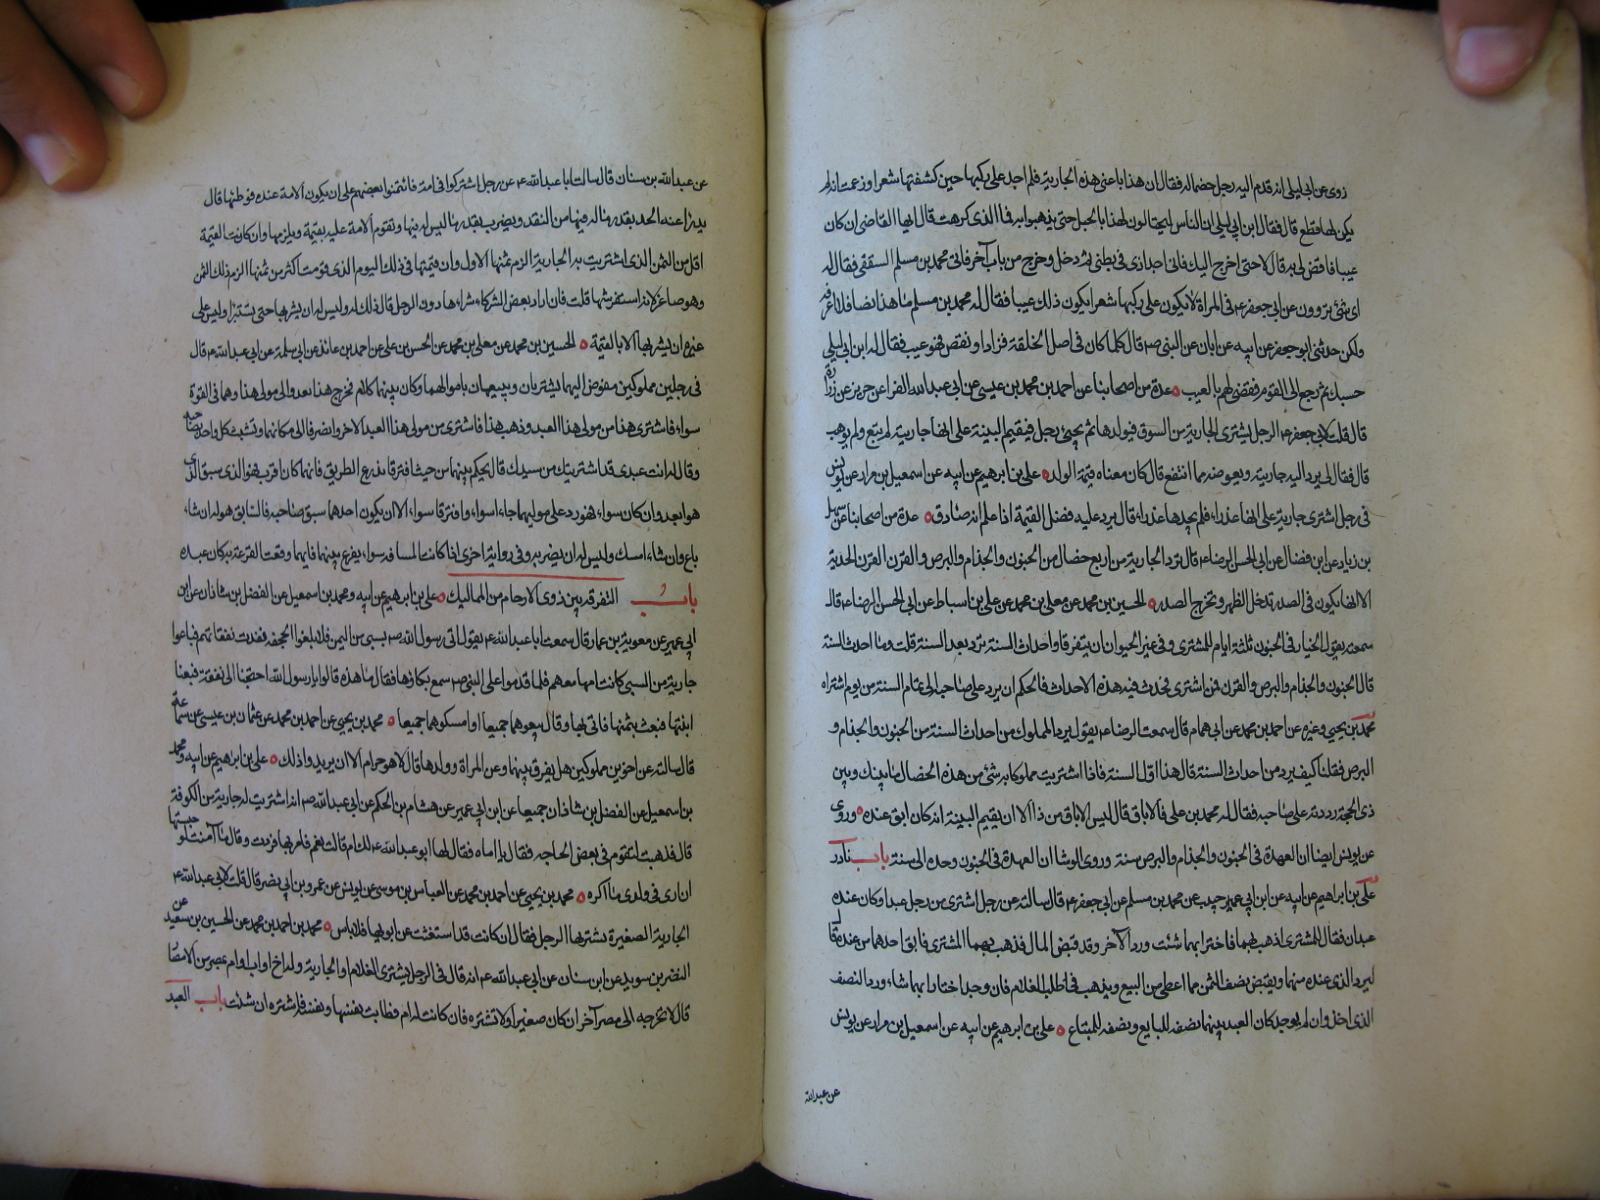 روى عن ابى ليلى انه قدم اليه رجل خصما له فقال ان هذا باعنى هذه الجارية فلم اجد على ركبها حين كشفتها شعرا وزعمت انه لم
يكن لها قط قال فقال ابن ابى ليلى ان الناس ليحتالون لهذا بالحيل حتى يذهبوا به فما الذى كرهت قال ايها القاضى ان كان
عيبا فاقض لى به قال لا حتى اخرج اليك فانى اجد اذى فى بطنى ثم دخل وخرج من باب آخر فاتى محمد بن مسلم الثقفى فقال له
اى شئ تروون عن ابى جعفر ع فى المراة لا يكون على ركبها شعر ايكون ذلك عيبا فقال له محمد بن مسلم اما هذا نصا فلا اعرفه
ولكن حدثنى ابو جعفر عن ابيه عن ابائه عن النبى ص قال كلما كان فى اصل الخلقة فزاد او نقص فهو عيب فقال له ابن ابى ليلى
حسبك ثم رجع الى القوم فقضى لهم بالعيب عدة من اصحابنا عن احمد بن محمد بن عيسى عن ابى عبد الله الفرا عن حريز عن زرارة
قال قلت لابى جعفر ع الرجل يشترى الجارية من السوق فيولدها ثم يجيئ رجل فيقيم البينة على انها جاريته لم تبع ولم يوهب
قال فقال لى يرد اليه جاريته ويعوضه مما انتفع قال كان معناه قيمة الولد على بن ابرهيم عن ابيه عن اسمعيل بن مرار عن يونس
فى رجل اشترى جارية على انها عذراء فلم يجدها عذراء قال يرد عليه فضل القيمة اذا علم انه صادق عدة من اصحابنا عن سهل
بن زياد عن ابن فضال عن ابى الحسن الرضا ع قال ترد الجارية من اربع خصال من الجنون والجذام والبرص والقرن القرن الحدبة
الا انها يكون فى الصدر تدخل الظهر وتخرج الصدر الحسين بن محمد عن معلى بن محمد عن على بن اسباط عن ابى الحسن الرضا ع قال
سمعته يقول الخيار فى الحيوان ثلثة ايام للمشترى وفى غير الحيوان ان يتفرقا واحداث السنة ترد بعد السنة قلت وما احداث السنة
قال الجنون والجذام والبرص والقرن فمن اشترى فحدث فيه هذه الاحداث فالحكم ان يرد على صاحبه الى تمام السنة من يوم اشتراه
محمد بن يحيى وغيره عن احمد بن محمد عن ابى همام قال سمعت الرضا ع يقول يرد المملوك من احداث السنة من الجنون والجذام و
البرص فقلنا كيف يرد من احداث السنة قال هذا اول السنة فاذا اشتريت مملوكا به شئ من هذه الخصال ما بينك وبين
ذى الحجة رددته على صاحبه فقال له محمد بن على فالاباق قال ليس الاباق من ذا الا ان يقيم البينة انه كان ابق عنده وروى
عن يونس ايضا ان العهدة فى الجنون والجذام والبرص سنة وروى الوشا ان العهدة فى الجنون وحده الى سنة باب نادر
على بن ابراهيم عن ابيه عن ابن ابى عمير عن محمد بن مسلم عن ابى جعفر ع قال سالته عن رجل اشترى من رجل عبدا وكان عنده
عبدان فقال للمشترى اذهب بهما فاختر ايهما شئت ورد الآخر وقد قبض المال فذهب بهما المشترى فابق احدهما من عنده قال
ليرد الذى عنده منهما ويقبض نصف الثمن مما اعطى من البيع ويذهب فى طلب الغلام فان وجد اختار ايهما شاء ورد النصف
الذى اخذ وان لم يوجد كان العبد بينهما نصفه للبايع ونصفه للمبتاع على بن ابرهيم عن ابيه عن اسمعيل بن مرار عن يونس
عن عبدالله
عن عبدالله بن سنان قال سالت ابا عبدالله ع عن رجل اشتركوا فى امة فائتمنوا بعضهم على ان يكون الامة عنده فوطئها قال
يدرأ عنه الحد بقدر ماله فيها من النقد ويضرب بقدر ما ليس له فيها وتقوم الامة عليه بقيمة ويلزمها وان كانت القيمة
اقل من الثمن الذى اشتريت به الجارية الزم ثمنها الاول وان قيمتها فى ذلك اليوم الذى قومت اكثر من ثمنها الزم ذلك الثمن
وهو صاغر لانه استفرشها قلت فان اراد بعض الشركاء شراءها دون الرجل قال ذلك له وليس له ان يشتريها حتى يستبرأ وليس على
غيره ان يشتريها الا بالقيمة الحسين بن محمد عن معلى بن محمد عن الحسن بن على عن احمد بن عائذ عن ابى سلمة عن ابى عبدالله ع قال
فى رجلين مملوكين مفوض اليهما يشتريان ويبيعان باموالهما وكان بينهما كلام فخرج هذا يعدو الى مولى هذا وهما فى القوة
سواء فاشترى هذا من مولى هذا العبد وذهب هذا فاشترى من مولى هذا العبد الاخر وانصرفا الى مكانهما وتشبث كل واحد بصاحبه
وقال له انت عبدى قد اشتريتك من سيدك قال يحكم بينهما من حيث افترقا يذرع الطريق فايهما كان اقرب فهو الذى سبق الذى
هو ابعد وان كان سواء فهو رد على مواليهما جاءا سواء وافترقا سواء الا ان يكون احدهما سبق صاحبه فالسابق هو له ان شاء
باع وان شاء امسك وليس له ان يضربه وفى رواية اخرى اذا كانت المسافة سواء يقرع بينهما فايهما وقعت القرعة به كان عبده
باب التفرقه بين ذوى الارحام من المماليك على بن ابرهيم عن ابيه ومحمد بن اسمعيل عن الفضل بن شاذان عن ابن
ابى عمير عن معوية بن عمار قال سمعت ابا عبدالله ع يقول اتى رسول الله ص بسبى من اليمن فلما بلغوا الجحفه نفدت نفقاتهم فباعوا
جارية من السبى كانت امها معهم فلما قدموا على النبى ص سمع بكاؤها فقال ما هذه قالوا يا رسول الله احتجنا الى نفقة فبعنا
ابنتها فبعث بثمنها فاتى بها وقال بيعوهما جميعا او امسكوهما جميعا محمد بن يحيى عن احمد بن محمد عن عثمان بن عيسى عن سماعة
قال سالته عن اخوين مملوكين هل يفرق بينهما وعن المراة وولدها قال لا هو حرام الا ان يريدوا ذلك على بن ابرهيم عن ابيه ومحمد
بن اسمعيل عن الفضل بن شاذان جميعا عن ابن ابى عمير عن هشام بن الحكم عن ابى عبدالله ص انه اشتريت له جارية من الكوفة
قال فذهبت لتقوم فى بعض الحاجه فقال يا اماه فقال لها ابو عبدالله ع الك ام قالت نعم فامر بها فردت وقال ما آمنت لو حبستها
ان ارى فى ولدى ما اكره محمد بن يحيى عن احمد بن محمد عن العباس بن موسى عن يونس عن عمرو بن ابى نصر قال قلت لابى عبدالله ع
الجارية الصغيرة يشتريها الرجل فقال ان كانت قد استغنت عن ابويها فلا باس محمد بن احمد بن محمد عن الحسين بن سعيد عن
النضر بن سويد عن ابن سنان عن ابى عبدالله ع انه قال فى الرجل يشترى الغلام او الجارية وله اخ او اب او ام بمصر من الامصار
قال لا تخرجه الى مصر آخر ان كان صغيرا ولا تشتره فان كانت له ام فطابت نفسها ونفسه فاشتره ان شئت باب العبد